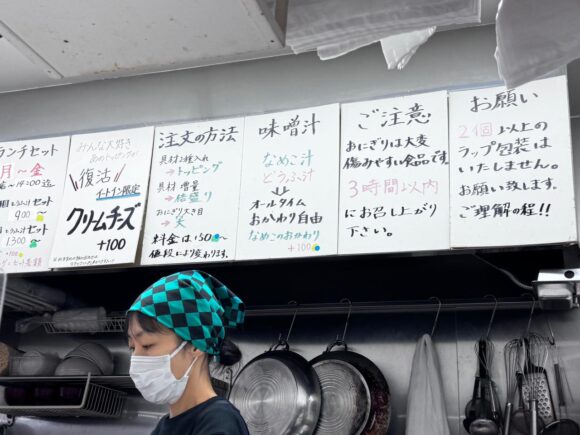 ランチセット
月〜金
〜14:00迄
セット
900
セット
1,300
みんな大好き
あのトッピングが
復活
イートイン限定
クリームチーズ
+100
注文の方法
具材2種入れ
→トッピング
具材 増量
→倍盛り
おにぎり大き目
→大
料金は+50〜
値段により変わります。
味噌汁
なめこ汁
とうふ汁
オールタイム
おかわり自由
なめこのおかわり
+100
ご注意
おにぎりは大変
傷みやすい食品です。
3時間以内
にお召し上がり
下さい。
お願い
2個以上の
ラップ包装は
いたしません。
お願い致します。
ご理解の程!!